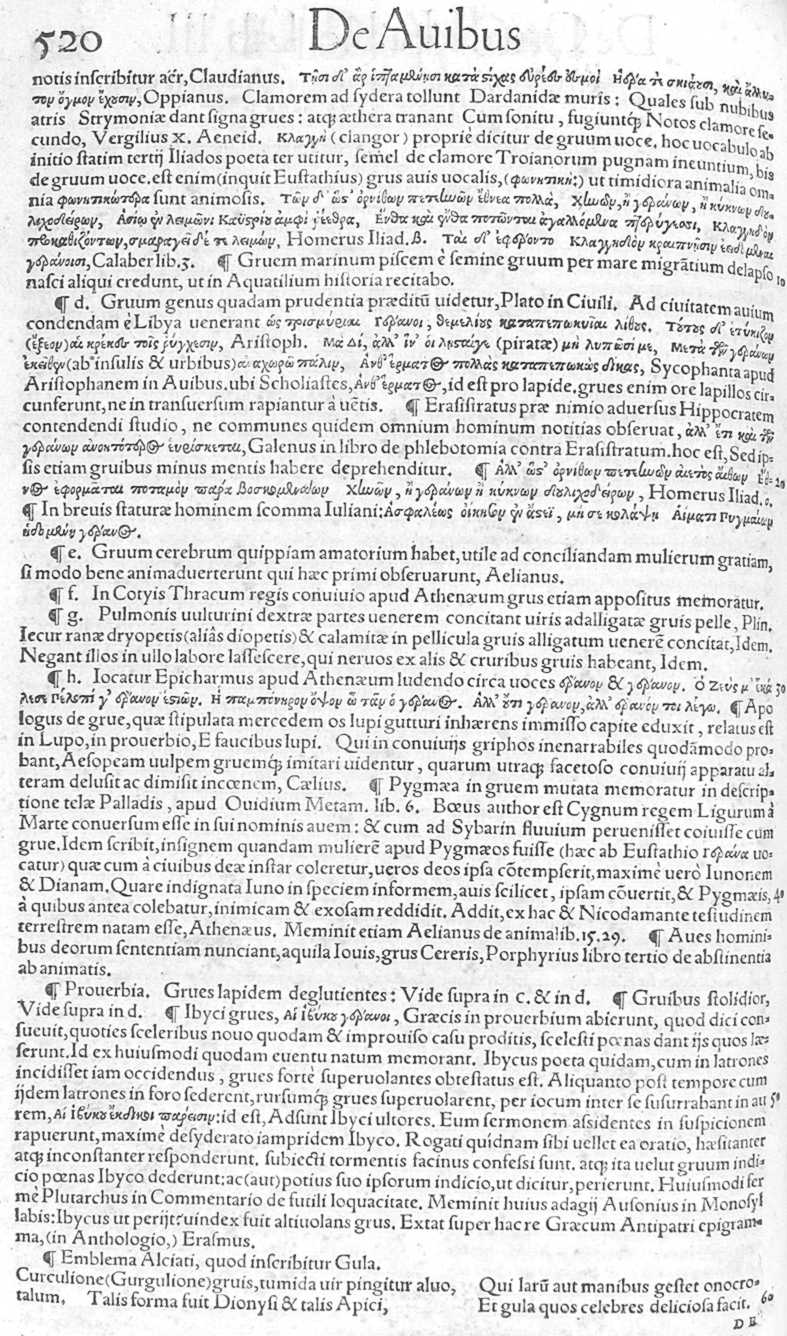 520 De Avibus
notis inscribitur aër, Claudianus. κατὰ
Oppianus. Clamorem ad sydera tollunt Dardanidæ muris: Quales sub nubibus
atris Strymoniæ dant signa grues: atq; æthera tranant Cum sonitu, fugiuntq́; Notos clamore se-
cundo, Vergilius X. Aeneid. Κλαγγὴ (clangor) propriè dicitur de gruum uoce. hoc uocabulo ab
initio statim tertij Iliados poeta ter utitur, semel de clamore Troianorum pugnam ineuntium, bis
de gruum uoce. est enim (inquit Eustathius) grus auis uocalis, (φωνητικὴ:) ut timidiora animalia om-
nia φωνητικώτερα sunt animosis. Τῶν δ' ὥς τ' ὀρνίθων πετεηνῶν ἔθνεα πολλὰ, Χηνῶν, ἢ γεράνων, ἢ κύκνων δου-
λιχοδείρων, Ἀσίῳ ἐν λειμῶνι Καϋστρίου ἀμφὶ ῥέεθρα, Ἔνθα καὶ ἔνθα ποτῶνται ἀγαλλόμενα πτερύγεσσι, Κλαγγηδὸν
προκαθιζόντων, σμαραγεῖ δέ τε λειμών, Homerus Iliad. β. Ταὶ δ'
γεράνοισι, Calaber lib. 3. ¶ Gruem marinum piscem è semine gruum per mare migrātium delapso
nasci aliqui credunt, ut in Aquatilium historia recitabo. 10
¶ d. Gruum genus quadam prudentia præditū uidetur, Plato in Ciuili. Ad ciuitatem auium
condendam è Libya uenerant ὡς τρισμύριαι Γέρανοι, θεμελίους καταπεπωκυῖαι λίθους. Τούτους δ' ἐτύκιζον
(ἔξεον) αἱ κρέκες τοῖς ῥύγχεσιν, Aristoph. Μὰ Δί, ἀλλ' ἵν' οἱ λῃσταί γε (piratæ) μὴ λυπῶσί με, Μετὰ τῶν γεράνων
ἐκεῖθεν (ab insulis & urbibus) ἀναχωρῶ πάλιν, Ἀνθ' ἕρματος πολλὰς καταπεπωκὼς δίκας, Sycophanta apud
Aristophanem in Auibus. ubi Scholiastes, Ἀνθ' ἕρματος, id est pro lapide. grues enim ore lapillos cir-
cunferunt, ne in transuersum rapiantur à uētis. ¶ Erasistratus præ nimio aduersus Hippocratem
contendendi studio, ne communes quidem omnium hominum notitias obseruat, ἀλλ' ἔτι καὶ τῶν
γεράνων ἀνοητότερος εὑρίσκεται, Galenus in libro de phlebotomia contra Erasistratum. hoc est, Sed ip-
sis etiam gruibus minus mentis habere deprehenditur. ¶ Ἀλλ' ὥς τ' ὀρνίθων πετεηνῶν αἰετὸς αἴθων Ἔθ- 20
νος ἐφορμᾶται ποταμὸν παρὰ βοσκομενάων Χηνῶν, ἢ γεράνων ἢ κύκνων δουλιχοδείρων, Homerus Iliad. ο.
¶ In breuis staturæ hominem scomma Iuliani: Ἀσφαλέως οἴκησον ἐν ἄστεϊ, μή σε κολάψῃ Αἵματι Πυγμαίων
ἡδομένη γέρανος.
¶ e. Gruum cerebrum quippiam amatorium habet, utile ad conciliandam mulierum gratiam,
si modo bene animaduerterunt qui hæc primi obseruarunt, Aelianus.
¶ f. In Cotyis Thracum regis conuiuio apud Athenæum grus etiam appositus memoratur.
¶ g. Pulmonis uulturini dextræ partes uenerem concitant uiris adalligatæ gruis pelle, Plin.
Iecur ranæ dryopetis (aliâs diopetis) & calamitæ in pellicula gruis alligatum uenerē concitat, Idem.
Negant illos in ullo labore lassescere, qui neruos ex alis & cruribus gruis habeant, Idem.
¶ h. Iocatur Epicharmus apud Athenæum ludendo circa uoces ἔρανον & γέρανον. Ὁ Ζεύς μ' ἐκά- 30
λεσε Πέλοπί γ' ἔρανον ἑστιῶν. Ἦ παμπόνηρον ὄψον ὦ τᾶν ὁ γέρανος. Ἀλλ' οὔτι γέρανον, ἀλλ' ἔρανόν τοι λέγω. ¶ Apo
logus de grue, quæ stipulata mercedem os lupi gutturi inhærens immisso capite eduxit, relatus est
in Lupo, in prouerbio, E faucibus lupi. Qui in conuiuijs griphos inenarrabiles quodāmodo pro-
bant, Aesopeam uulpem gruemq́; imitari uidentur, quarum utraq; facetoso conuiuij apparatu al-
teram delusit ac dimisit incœnem, Cælius. ¶ Pygmæa in gruem mutata memoratur in descrip-
tione telæ Palladis, apud Ouidium Metam. lib. 6. Bœus author est Cygnum regem Ligurum à
Marte conuersum esse in sui nominis auem: & cum ad Sybarin fluuium peruenisset coiuisse cum
grue. Idem scribit, insignem quandam mulierē apud Pygmæos fuisse (hæc ab Eustathio Γεράνα uo-
catur) quæ cum à ciuibus deæ instar coleretur, ueros deos ipsa cōtempserit, maximè uerò Iunonem
& Dianam. Quare indignata Iuno in speciem informem, auis scilicet, ipsam cōuertit, & Pygmæis, 40
à quibus antea colebatur, inimicam & exosam reddidit. Addit, ex hac & Nicodamante testudinem
terrestrem natam esse, Athenæus. Meminit etiam Aelianus de animalib. 15. 29. ¶ Aues homini-
bus deorum sententiam nunciant, aquila Iouis, grus Cereris, Porphyrius libro tertio de abstinentia
ab animatis.
¶ Prouerbia. Grues lapidem deglutientes: Vide supra in c. & in d. ¶ Gruibus stolidior,
Vide supra in d. ¶ Ibyci grues, Αἱ Ἰβύκου γέρανοι, Græcis in prouerbium abierunt, quod dici con-
sueuit, quoties sceleribus nouo quodam & improuiso casu proditis, scelesti pœnas dant ijs quos læ-
serunt. Id ex huiusmodi quodam euentu natum memorant. Ibycus poeta quidam, cum in latrones
incidisset iam occidendus, grues fortè superuolantes obtestatus est. Aliquanto pòst tempore cum
ijdem latrones in foro sederent, rursumq́; grues superuolarent, per iocum inter se susurrabant in au 50
rem, Αἱ Ἰβύκου ἔκδικοι πάρεισιν: id est, Adsunt Ibyci ultores. Eum sermonem assidentes in suspicionem
rapuerunt, maximè desyderato iampridem Ibyco. Rogati quidnam sibi uellet ea oratio, hæsitanter
atq; inconstanter responderunt. subiecti tormentis facinus confessi sunt. atq; ita uelut gruum indi-
cio pœnas Ibyco dederunt: ac (aut) potius suo ipsorum indicio, ut dicitur, perierunt. Huiusmodi fer
mè Plutarchus in Commentario de futili loquacitate. Meminit huius adagij Ausonius in Monosyl
labis: Ibycus ut perijt: uindex fuit altiuolans grus. Extat super hac re Græcum Antipatri epigram-
ma, (in Anthologio,) Erasmus.
¶ Emblema Alciati, quod inscribitur Gula.
Curculione (Gurgulione) gruis, tumida uir pingitur aluo, Qui larū aut manibus gestet onocro-
talum. Talis forma fuit Dionysi & talis Apici, Et gula quos celebres deliciosa facit. 60
DE